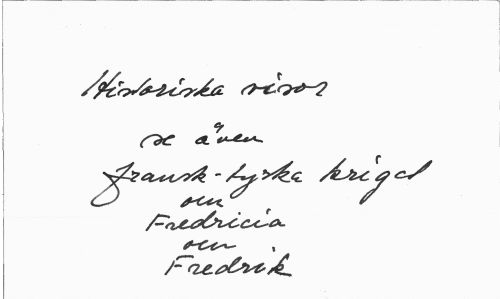 Historiska visor
se även
fransk-tyska kriget
om
Fredricia
om
Fredrik